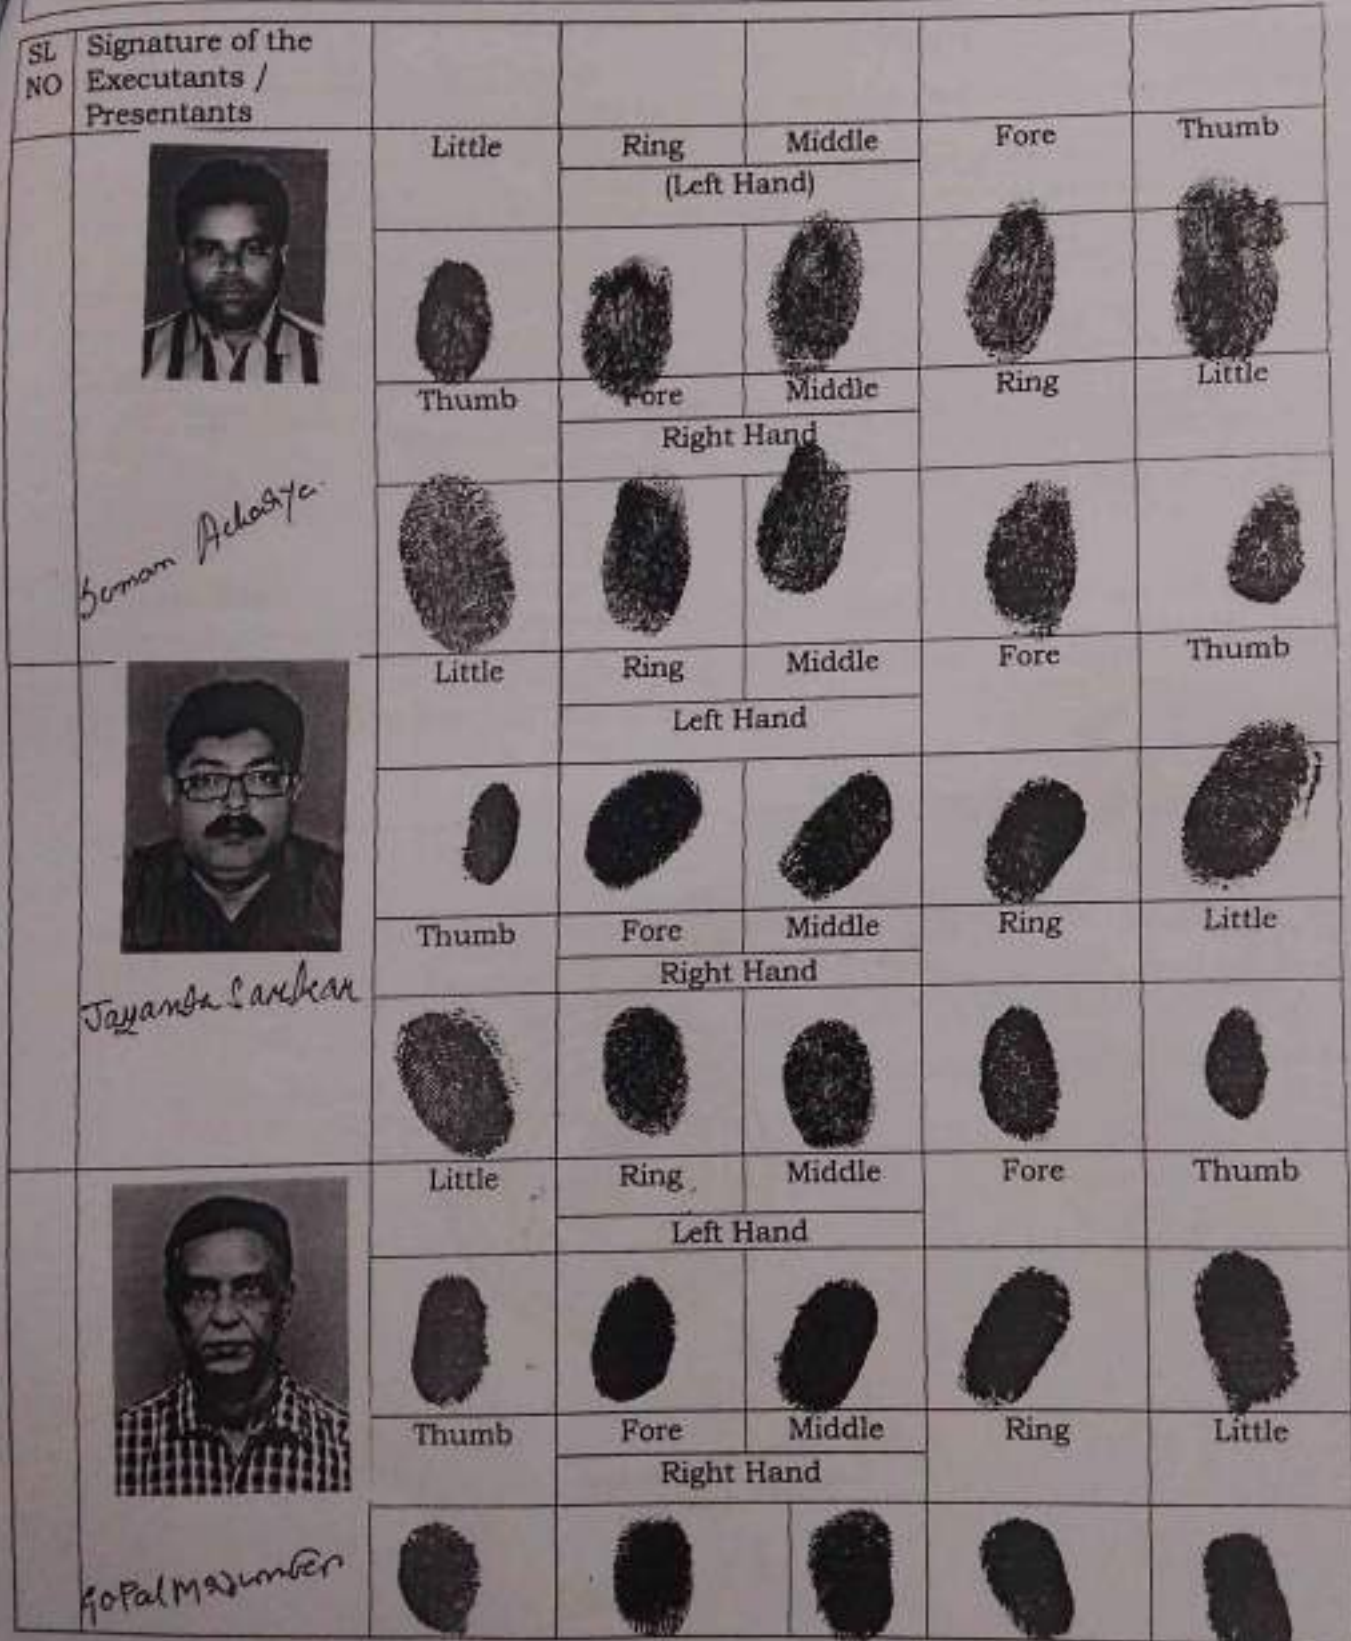 SL NO
Signature of the
Executants /
Presentants
Little Ring Middle Fore Thumb
(Left Hand)
Thumb Fore Middle Ring Little
Right Hand
Suman Acharya
Little Ring Middle Fore Thumb
Left Hand
Thumb Fore Middle Ring Little
Right Hand
Jayanta Sarkar
Little Ring Middle Fore Thumb
Left Hand
Thumb Fore Middle Ring Little
Right Hand
Gopal Majumder